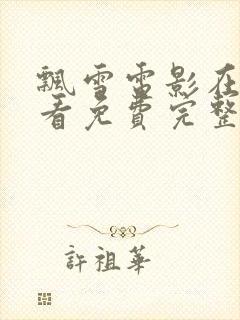 飄雪電影在
看免費完整
許祖華